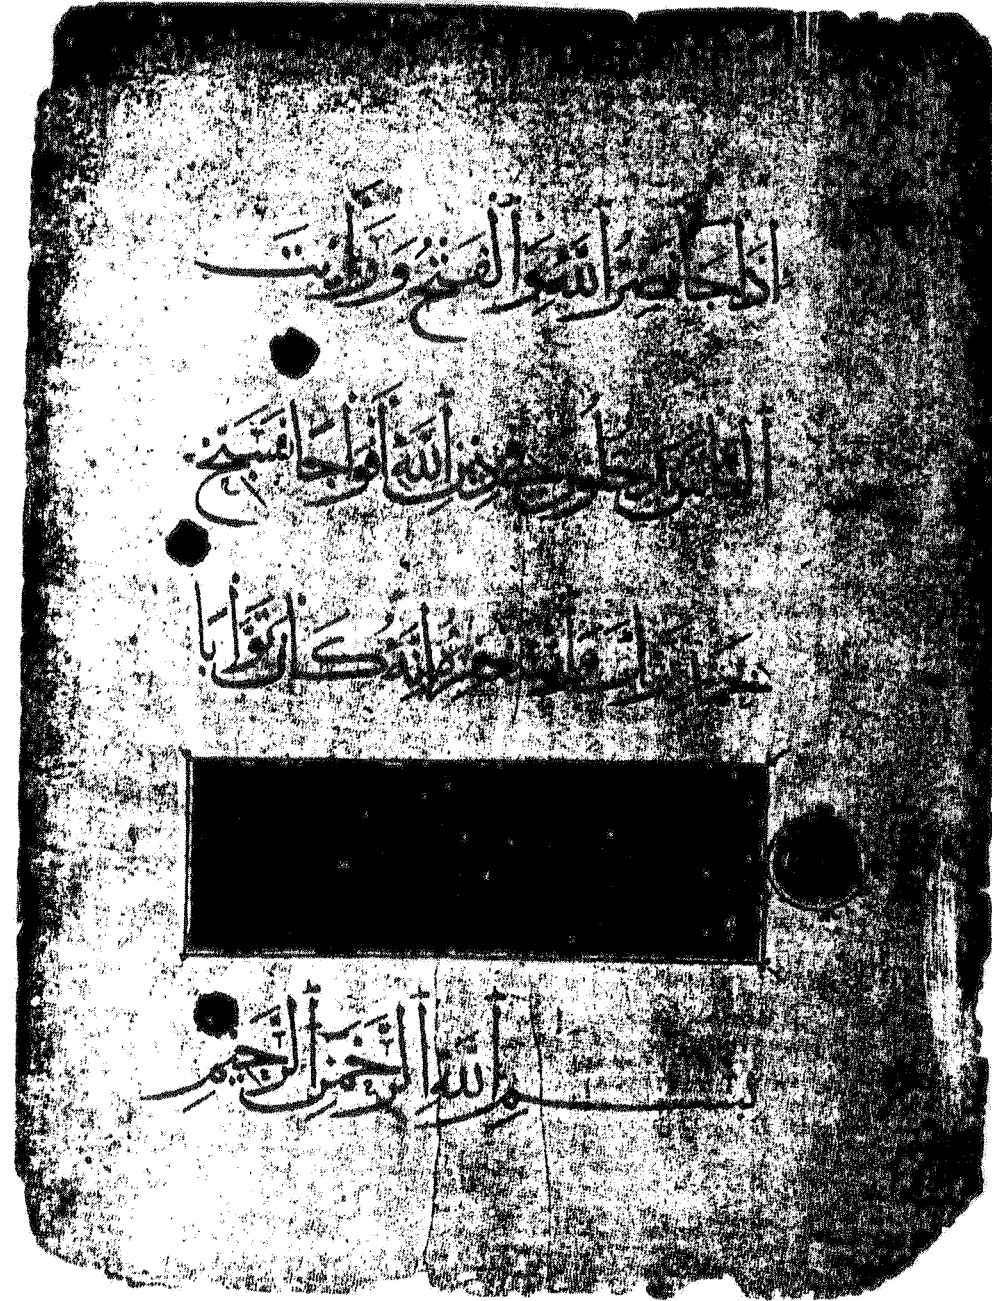 اذَا جَا نَصْرُ اللّٰهِ وَالْفَتْحُ وَرَاَيْتَ
النَّاسَ يَدْخُلُونَ فِي دِينِ اللّٰهِ اَفْوَاجًا فَسَبِّحْ
بِحَمْدِ رَبِّكَ وَاسْتَغْفِرْهُ اِنَّهُ كَانَ تَوَّابًا
بِسْمِ اللّٰهِ الرَّحْمٰنِ الرَّحِيمِ